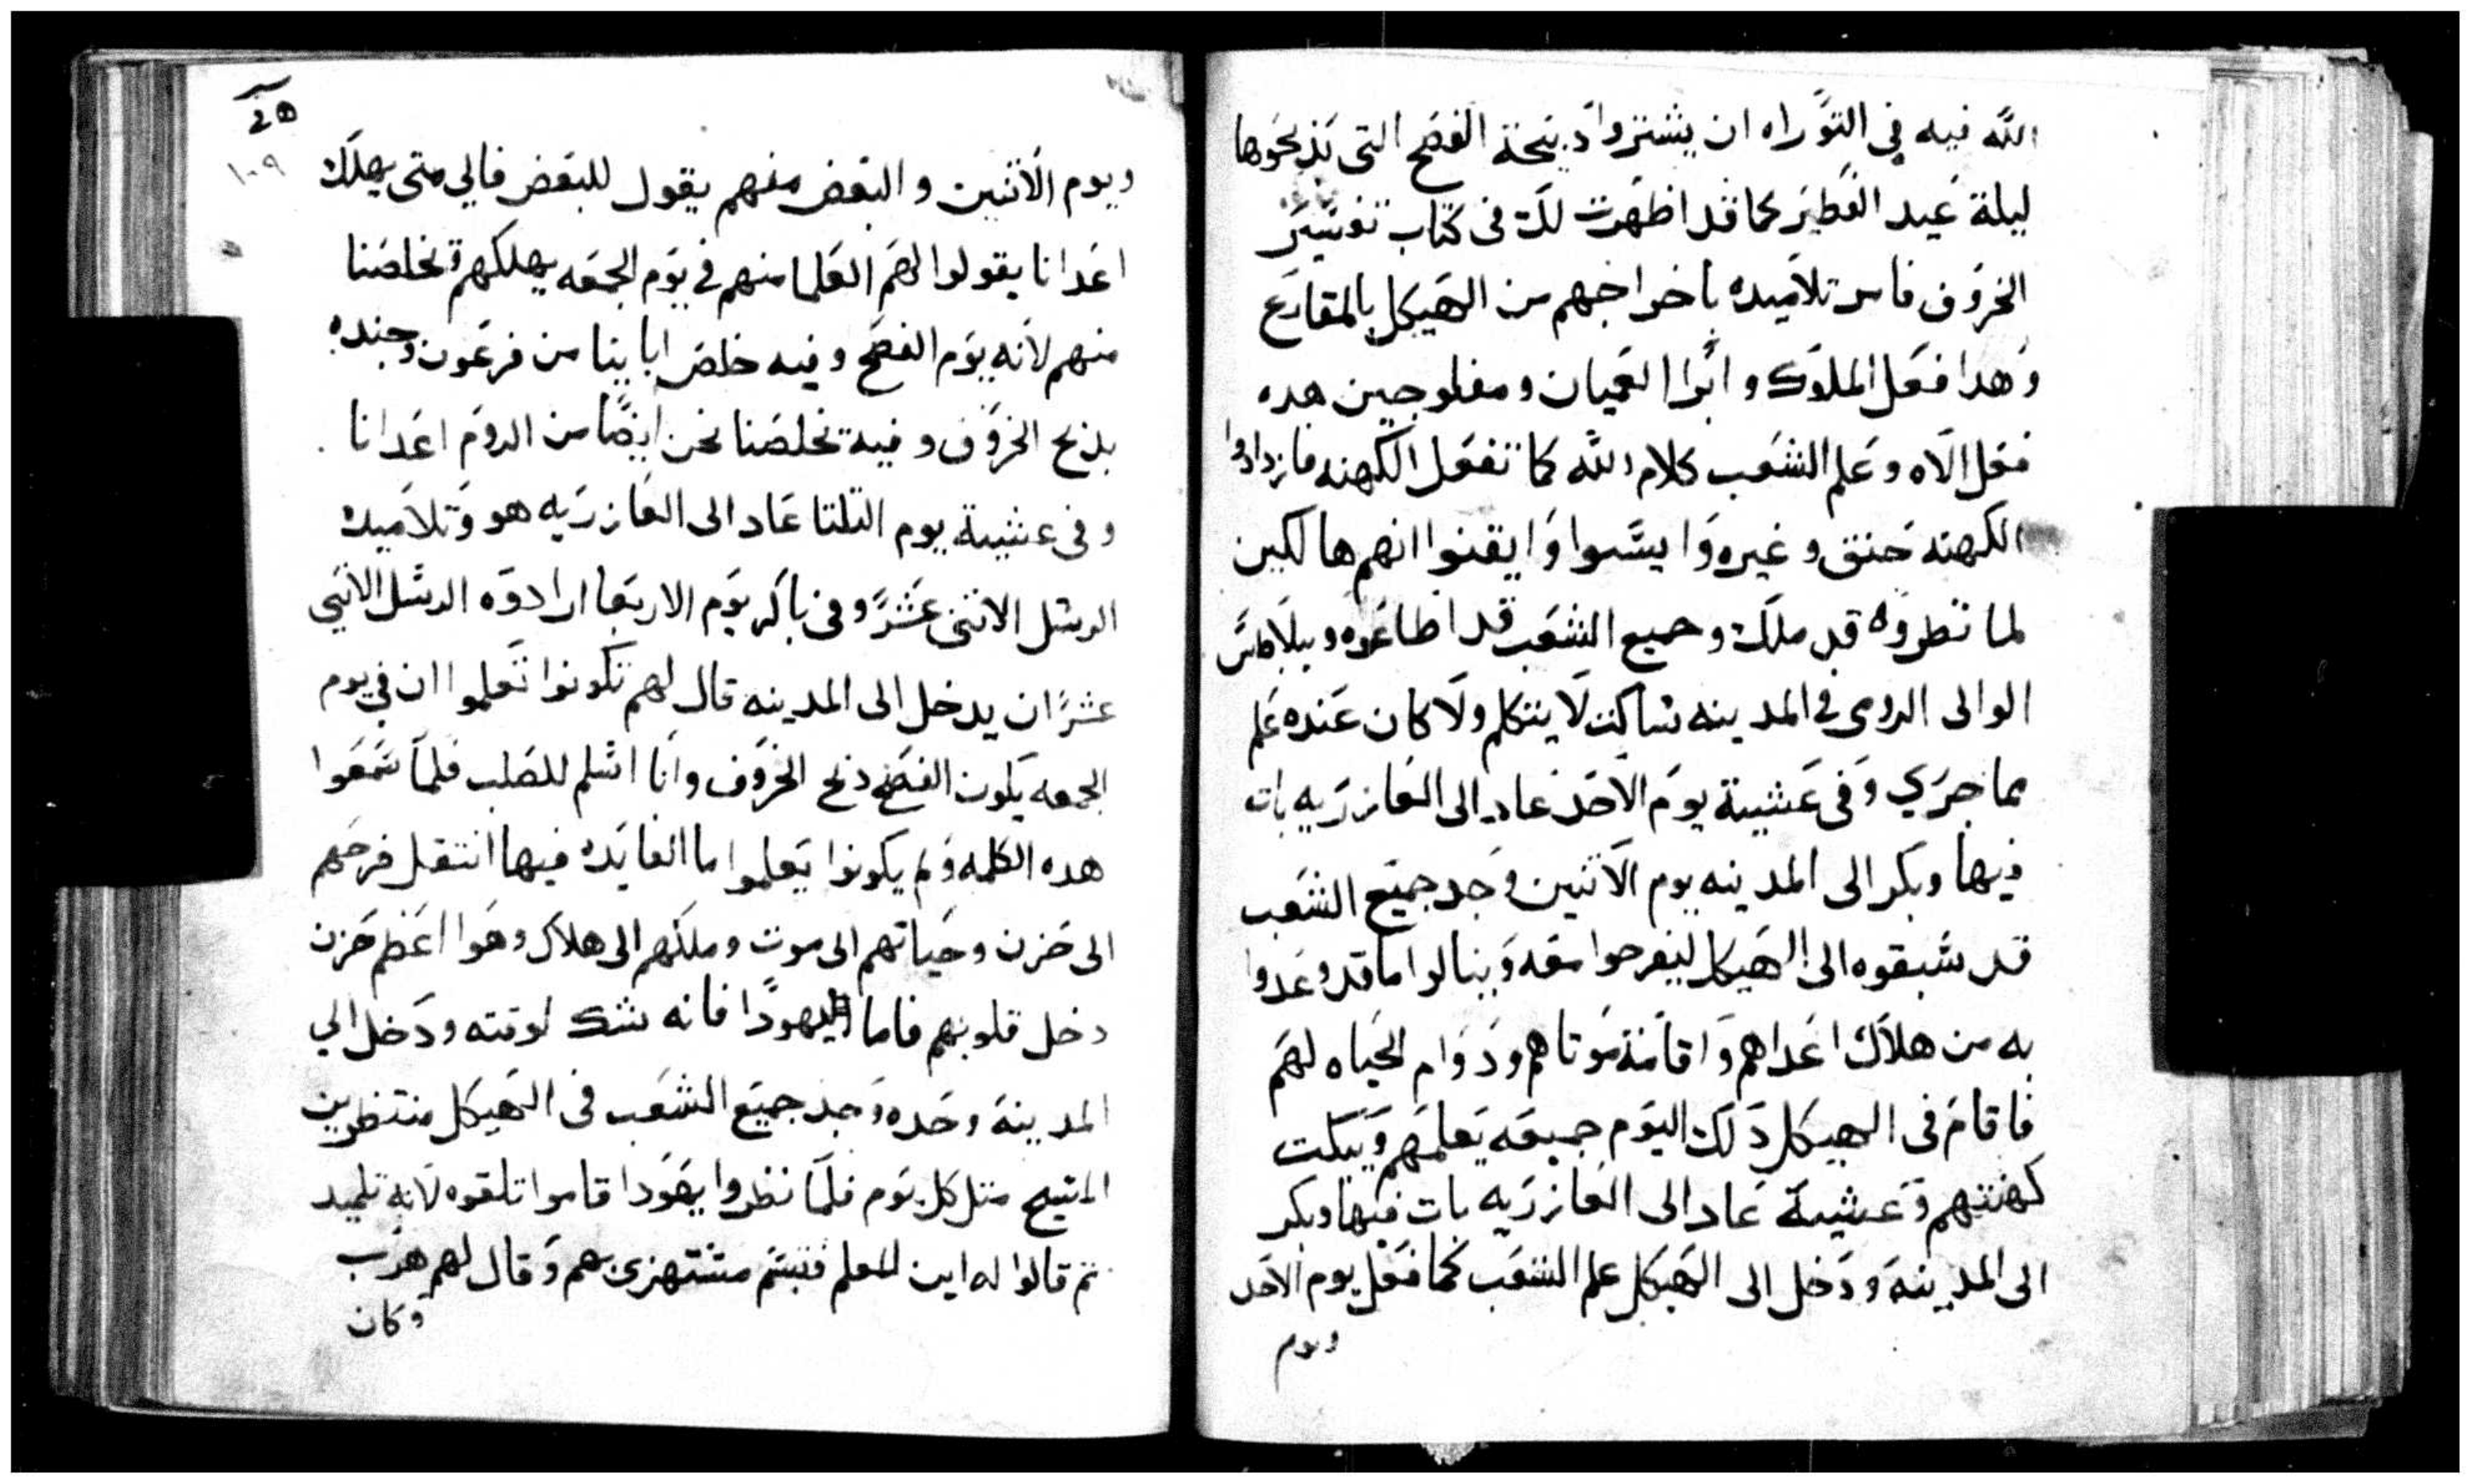 الله فيه في التوراه ان يشتروا دبيحة الفصح التى تذبحوها
ليلة عيد الفطير كما قد اظهرت لك فى كتاب تفسير
الخروف فامر تلاميده باخراجهم من الهيكل بالمقارع
وهدا فعل الملوك وابرا العميان ومفلوجين هده
فعل الاه وعلم الشعب كلام الله كما تفعل الكهنه فازدادوا
الكهنه حنق وغيره وايسوا وايقنوا انهم هالكين
لما نظروه قد ملك وجميع الشعب قد اطاعوه وبيلاطس
الوالى الرومى في المدينه ساكت لا يتكلم ولا كان عنده علم
مما جرى وفى عشية يوم الاحد عاد الى العازريه بات
فيها وبكر الى المدينه يوم الاثنين وجد جميع الشعب
قد سبقوه الى الهيكل ليفرحوا معه وينالوا ما قد وعدوا
به من هلاك اعداهم واقامة موتاهم ودوام الحياه لهم
فاقام فى الهيكل دلك اليوم جميعه يعلمهم ويبكت
كهنتهم وعشية عاد الى العازريه بات فيها وبكر
الى المدينة ودخل الى الهيكل علم الشعب كما فعل يوم الاحد
ويوم
١٠٩
ويوم الاثنين والبعض منهم يقول للبعض فالي متى يهلك
اعدانا يقولوا لهم العلما منهم في يوم الجمعه يهلكهم ويخلصنا
منهم لانه يوم الفصح وفيه خلص ابايينا من فرعون وجنده
بذبح الخروف وفيه يخلصنا نحن ايضًا من الروم اعدانا
وفى عشية يوم التلتا عاد الى العازريه هو وتلاميده
الرسل الاثنى عشر وفى باكر يوم الاربعا ارادوه الرسل الاثني
عشر ان يدخل الى المدينه قال لهم تكونوا تعلموا ان في يوم
الجمعه يكون الفصح ذبح الخروف وانا اسلم للصلب فلما سمعوا
هده الكلمه ولم يكونوا يعلموا ما الفايده فيها انتقل فرحهم
الى حزن وحياتهم الى موت وملكهم الى هلاك وهوا اعظم حزن
دخل قلوبهم فاما يهودا فانه شك لوقته ودخل الي
المدينة وحده وجد جميع الشعب فى الهيكل منتظرين
المسيح متل كل يوم فلما نظروا يهودا قاموا تلقوه لانه تلميد
تم قالوا له اين المعلم فتبسم مستهزى بهم وقال لهم هرب
وكان